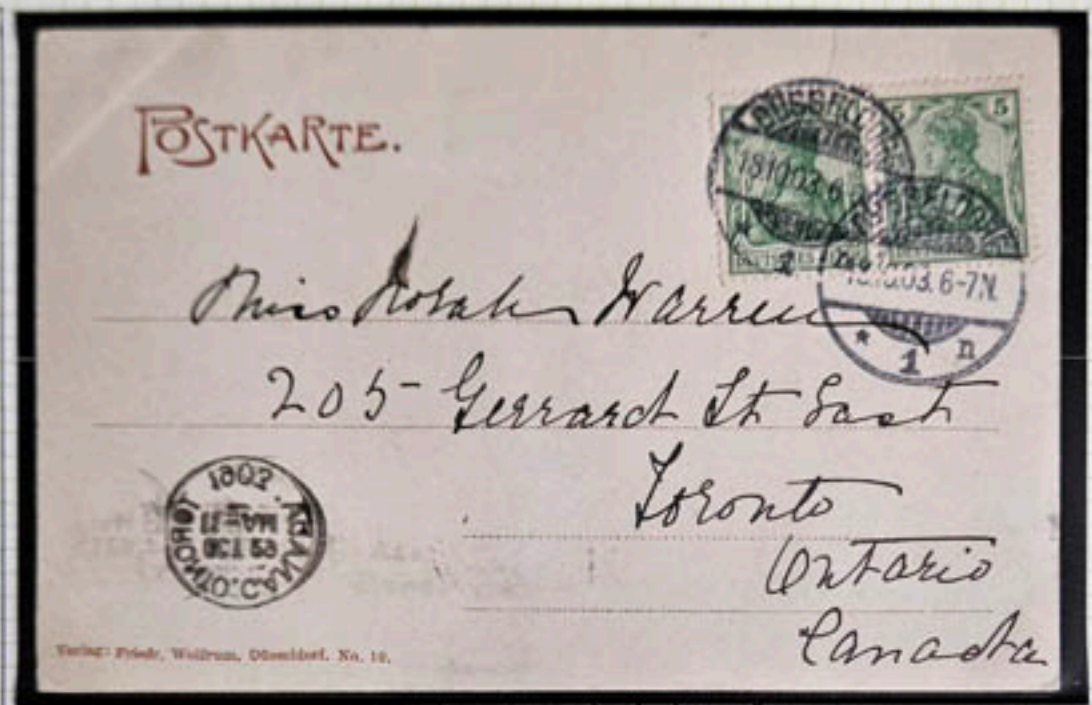 POSTKARTE.
5
5
DÜSSELDORF
18.10.03. 6
DÜSSELDORF
18.10.03. 6-7N.
* 1 n
Miss Norah Warren
205 Gerrard St East
Toronto
Ontario
Canada
TORONTO. CANADA
1903
Verlag: Friedr. Wolfrum, Düsseldorf. No. 10.